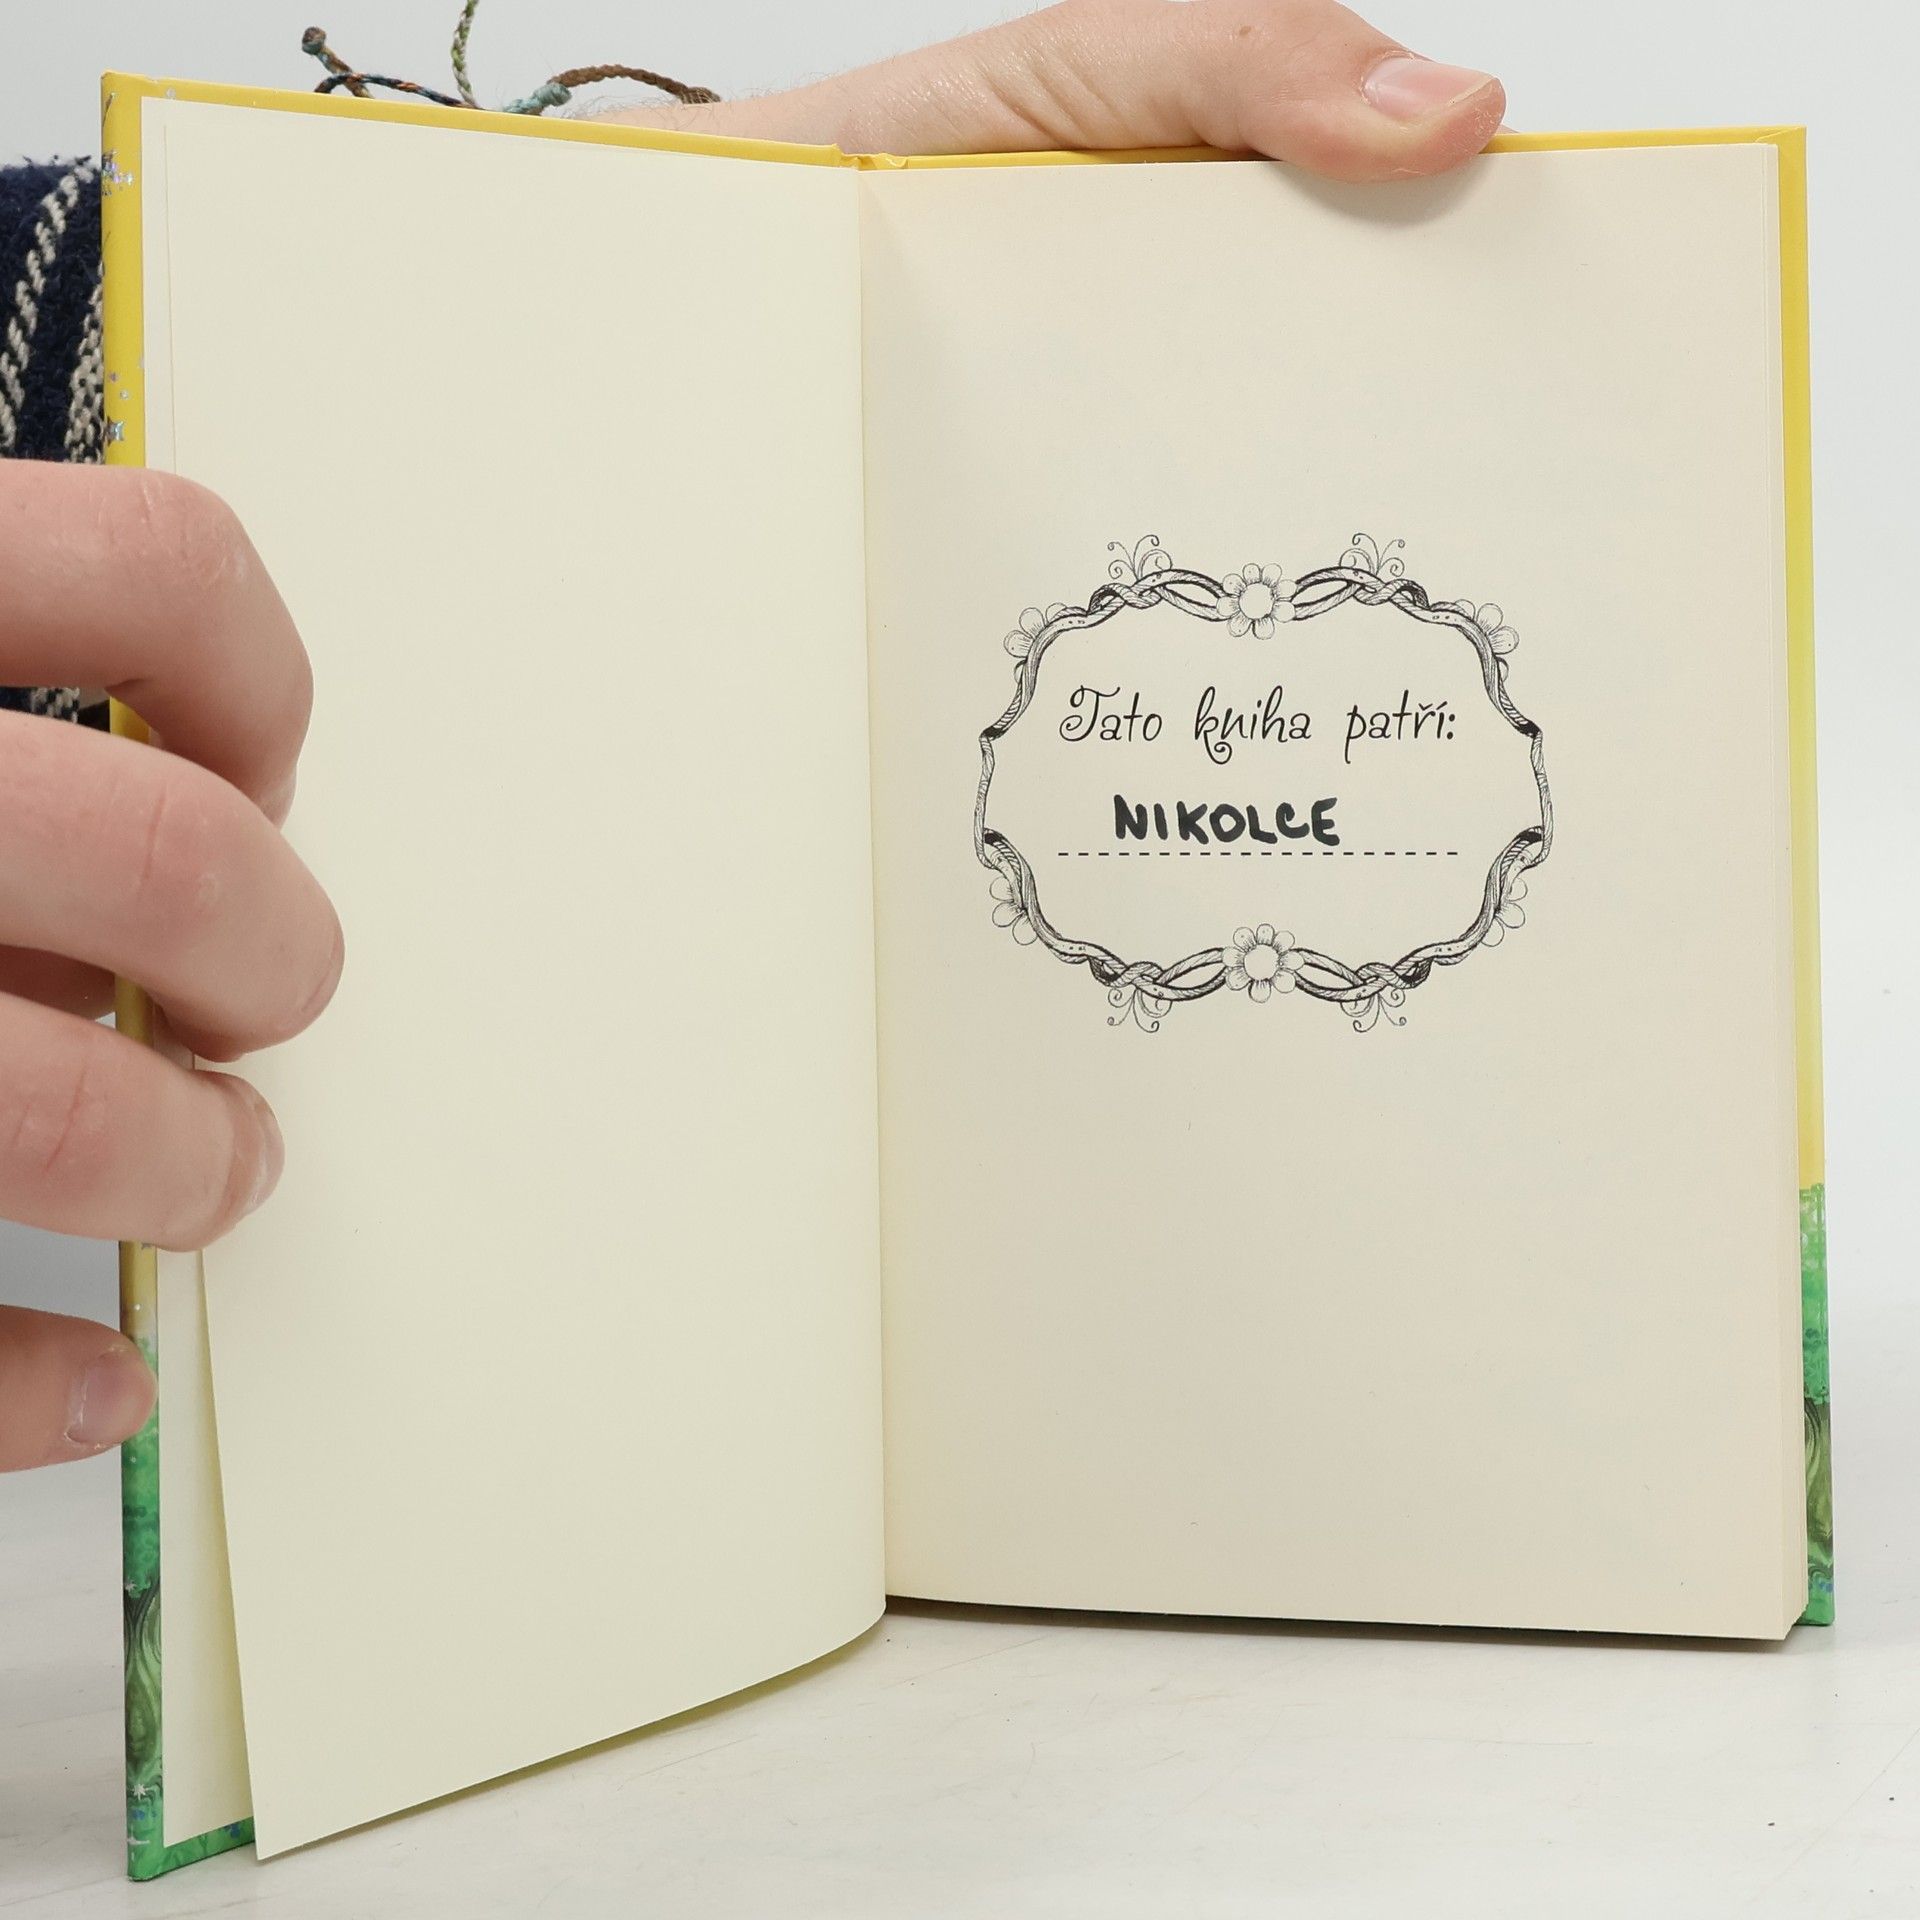 Tato kniha patří:
NIKOLCE